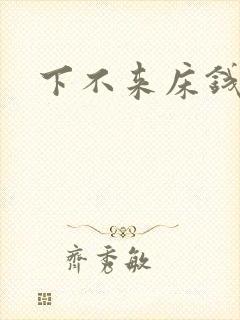 下不来床钱
齐秀敏